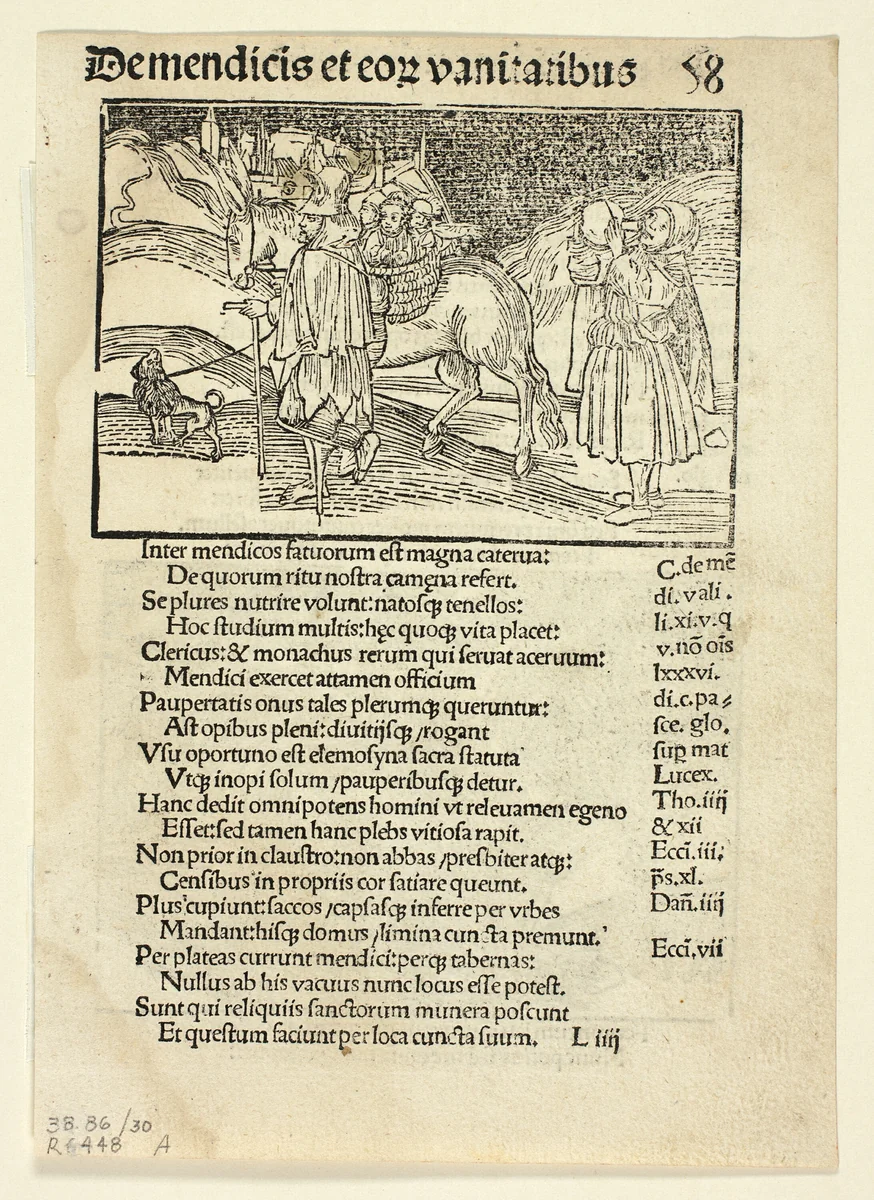 De mendicis et eoꝝ vanitatibus 58
Inter mendicos fatuorum est magna caterua:
De quorum ritu nostra camęna refert.
Se plures nutrire volunt: natosqꝫ tenellos:
Hoc studium multis: hęc quoqꝫ vita placet:
Clericus: & monachus rerum qui seruat aceruum:
Mendici exercet attamen officium
Paupertatis onus tales plerumqꝫ queruntur:
Ast opibus pleni: diuitijsqꝫ / rogant
Vsu oportuno est elemosyna sacra statuta
Vtqꝫ inopi solum / pauperibusqꝫ detur.
Hanc dedit omnipotens homini vt releuamen egeno
Esset: sed tamen hanc plebs vitiosa rapit.
Non prior in claustro: non abbas / presbiter atqꝫ:
Censibus in propriis cor satiare queunt.
Plus cupiunt: saccos / capsasqꝫ inferre per vrbes
Mandant: hisqꝫ domus / limina cuncta premunt.
Per plateas currunt mendici: perqꝫ tabernas:
Nullus ab his vacuus nunc locus esse potest.
Sunt qui reliquiis sanctorum munera poscunt
Et questum faciunt per loca cuncta suum. L iiij
C. de mē
di. vali.
li. xi. v. q
v. nō oīs
lxxxvi.
di. c. pa⸗
sce. glo.
suꝑ mat
Luce x.
Tho. iiij
& xii
Ecci. iii.
p̄s. xl.
Dan̄. iiij
Ecci. vii
38.86/30
R6448 A